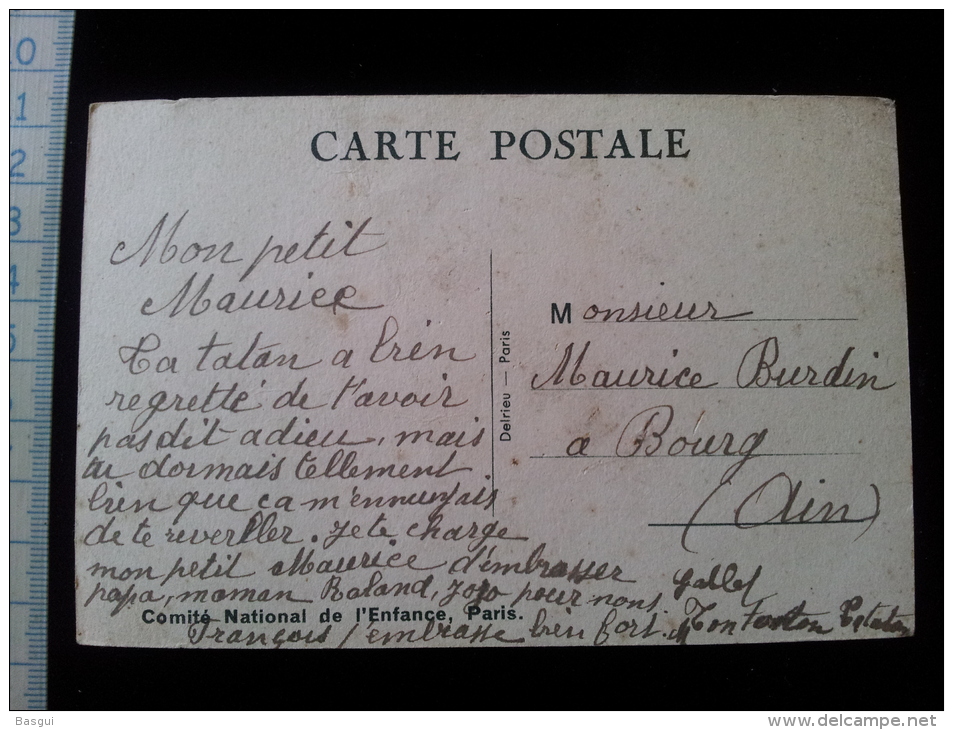 CARTE POSTALE
Mon petit
Maurice
Ta tatan a bien
regretté de t'avoir
pas dit adieu, mais
tu dormais tellement
bien que ça m'ennuyais
de te reveiller. Je te charge
mon petit Maurice d'embrasser
papa, maman Roland, Jojo pour nous.
François t'embrasse bien fort.
Ton tonton et tatan
Comité National de l'Enfance, Paris.
Delrieu — Paris
Monsieur
Maurice Burdin
a Bourg
(Ain)
0
1
2
3
4
5
Basgui
www.delcampe.net